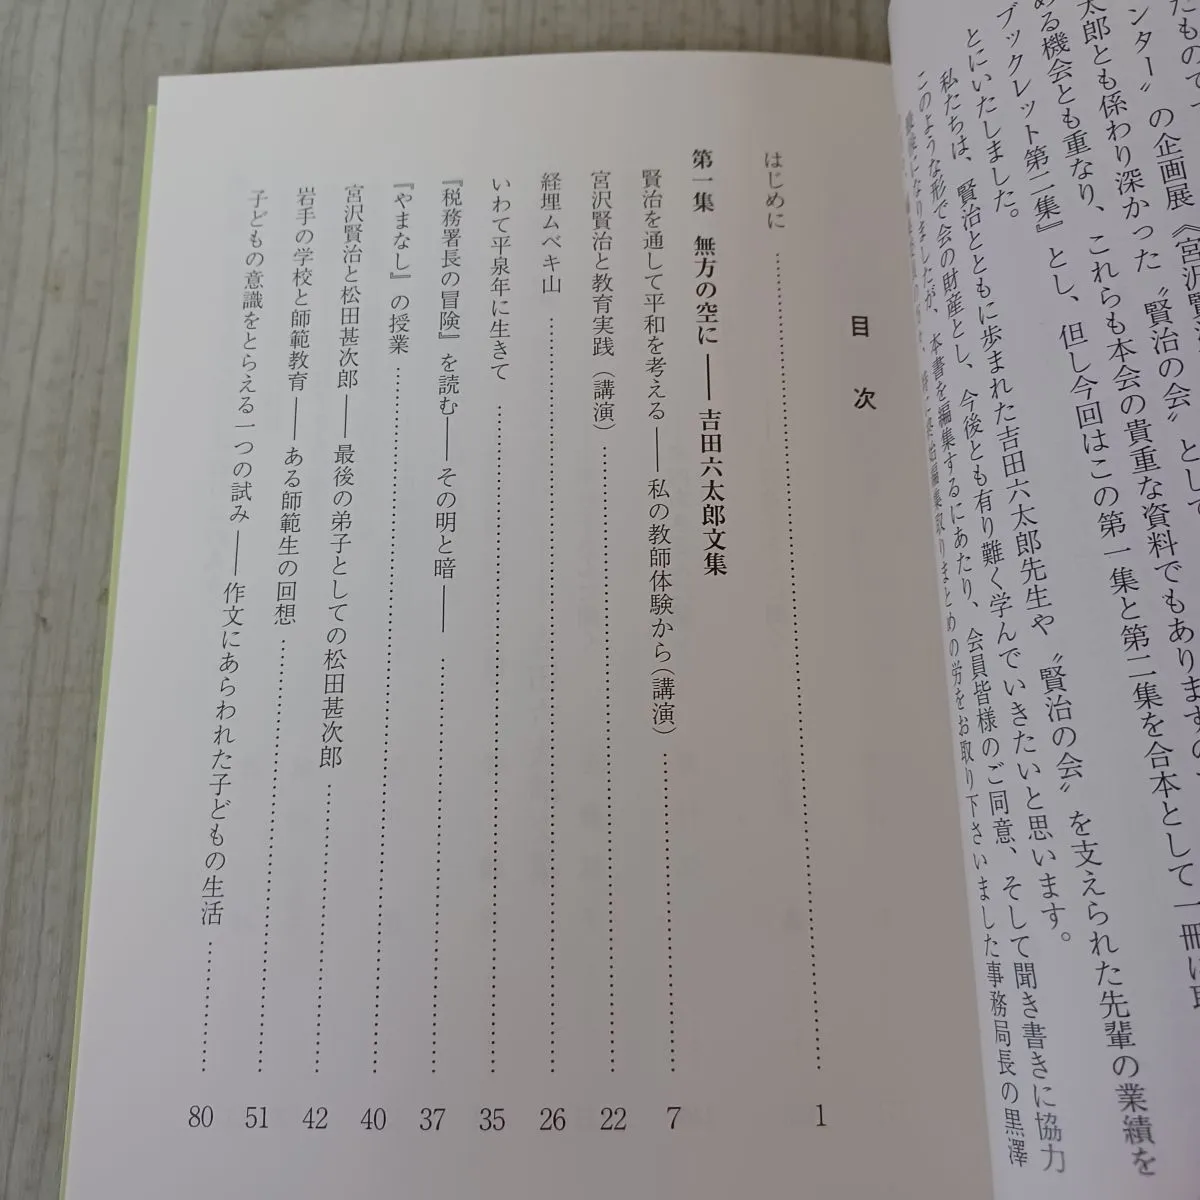 たもので、
ンター〟の企画展《宮沢賢治
太郎とも係わり深かった〝賢治の会〟として
める機会とも重なり、これらも本会の貴重な資料でもありますの
ブックレット第二集』とし、但し今回はこの第一集と第二集を合本として一冊に
とにいたしました。
私たちは、賢治とともに歩まれた吉田六太郎先生や〝賢治の会〟を支えられた先輩の業績を
このような形で会の財産とし、今後とも有り難く学んでいきたいと思います。
最後になりましたが、本書を編集するにあたり、会員皆様のご同意、そして聞き書きに協力
編集取りまとめの労をお取り下さいました事務局長の黒澤
目次
はじめに……………………1
第一集　無方の空に――吉田六太郎文集
賢治を通して平和を考える――私の教師体験から（講演）……………………7
宮沢賢治と教育実践（講演）……………………22
経埋ムベキ山……………………26
いわて平泉年に生きて……………………35
『税務署長の冒険』を読む――その明と暗――……………………37
『やまなし』の授業……………………40
宮沢賢治と松田甚次郎――最後の弟子としての松田甚次郎……………………42
岩手の学校と師範教育――ある師範生の回想……………………51
子どもの意識をとらえる一つの試み――作文にあらわれた子どもの生活……………………80